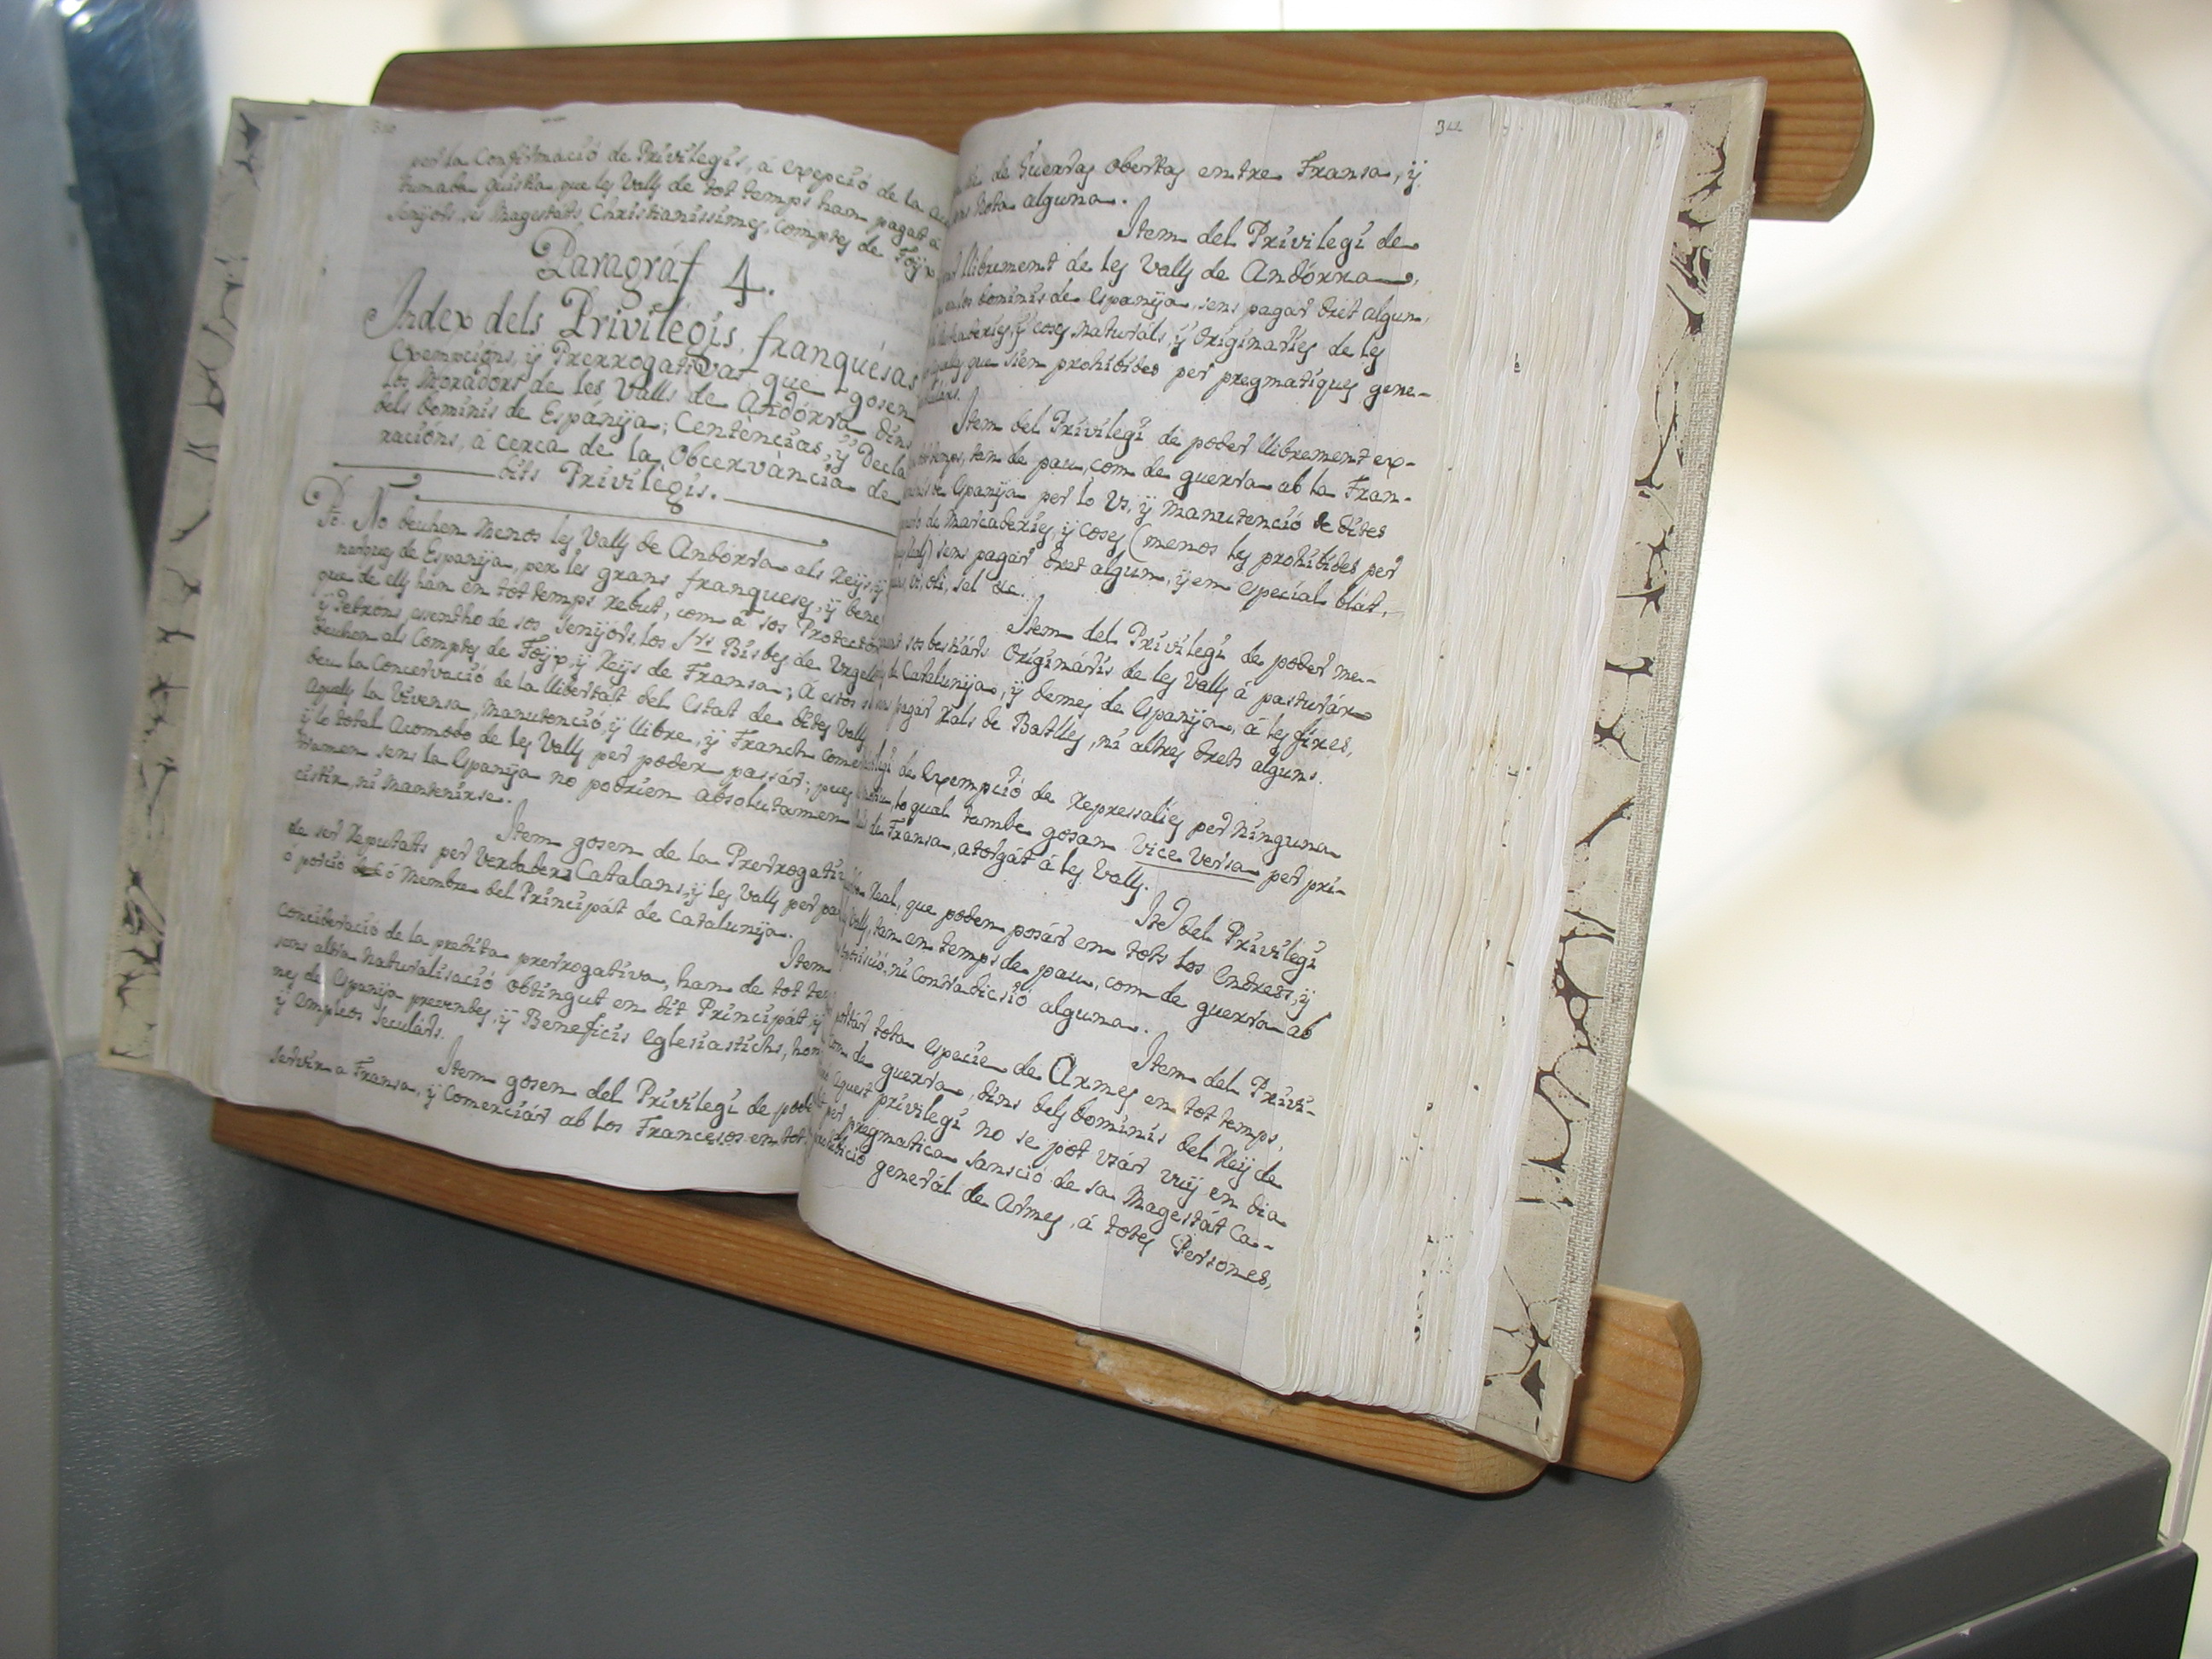 per la Confirmació de Privilegis, á excepció de la
tumaba quistia, que les Valls de tot temps han pagat á
Senyors, ses Magestats Christianissimes, Comptes de Foÿx
Paragráf 4.
Index dels Privilegis, franquésas
Exempcións, ÿ Prerrogativas, que gosen
los Moradors de les Valls de Andórra dins
dels dominis de Espanÿa; Centéncias, ÿ Decla
racións, á cerca de la Obcerváncia de
dits Privilégis.
Pº. No deuhen menos les Valls de Andórra als Reÿs, ÿ
narques de Espanÿa, per les grans franqueses, ÿ bene
que de ells hán en tót temps rebut, com á sos Protectórs
ÿ Patróns, essentho de sos Senÿórs, los Srs Bisbes de Urgell
deuhen als Comptes de Foÿx, ÿ Reÿs de Fransa; á estos
deu la Concervació de la llibertat del Estat de dites Valls
aquells la Vivensa, manutenció, ÿ llibre, ÿ Franch
ÿ lo total Acomodo de les Valls per poder passár; pues
sens la Espanÿa no podrien absolutamen
cistir, ni mantenirse.
Item gosen de la Prerrogati
de ser Reputats per Verdaders Catalans, ÿ les Valls per
ó porció ó Membre del Principát de Catalunÿa.
Item
Concideració de la predita prerrogativa, han de tot
sens altra Naturalisació obtingut en dit Principát, ÿ
nes de Espanÿa prevendes, ÿ Beneficis Eglesiastichs,
ÿ empleos Seculárs.
Item gosen del Privilegi de
servir a Fransa, ÿ Comerciár ab los Francesos en tot
de Guerras obertas entre Fransa, ÿ
nota alguna.
Item del Privilegi de
llibrement de les Valls de Andórra,
dominis de Espanÿa, sens pagar dret algun,
ÿ coses naturáls, ÿ originaries de les
que sien prohibides per pragmatiques gene-
Item del Privilegi de poder llibrement ex-
temps, tan de pau, com de guerra ab la Fran-
Espanÿa per lo Us, ÿ manutenció de dites
de Marcaderies, ÿ coses (menos les prohibides per
sens pagár dret algun, ÿ en especial blat,
vi, oli, sal &c.
Item del Privilegi de poder me-
sos bestiárs Origináris de les Valls á pasturár
Catalunÿa, ÿ demes de Espanÿa, á les fires,
pagár Rals de Batlles, ni altres drets alguns.
de Exempció de Repressalies per ninguna
lo qual tambe gosan Vice versa per pri-
de Fransa, atorgát á les Valls.
Itẽ del Privilegi
Real, que poden posár en tots los Endrets, ÿ
Valls, tan en temps de pau, com de guerra ab
ni Contradicció alguna.
Item del Privi-
portár tota especie de Armes en tot temps,
de guerra, dins dels dominis del Reÿ de
Aquest privilegi no se pot usár vuÿ en dia
per pragmatica sanció de sa Magestát Ca-
general de Armes, á totes Persones,